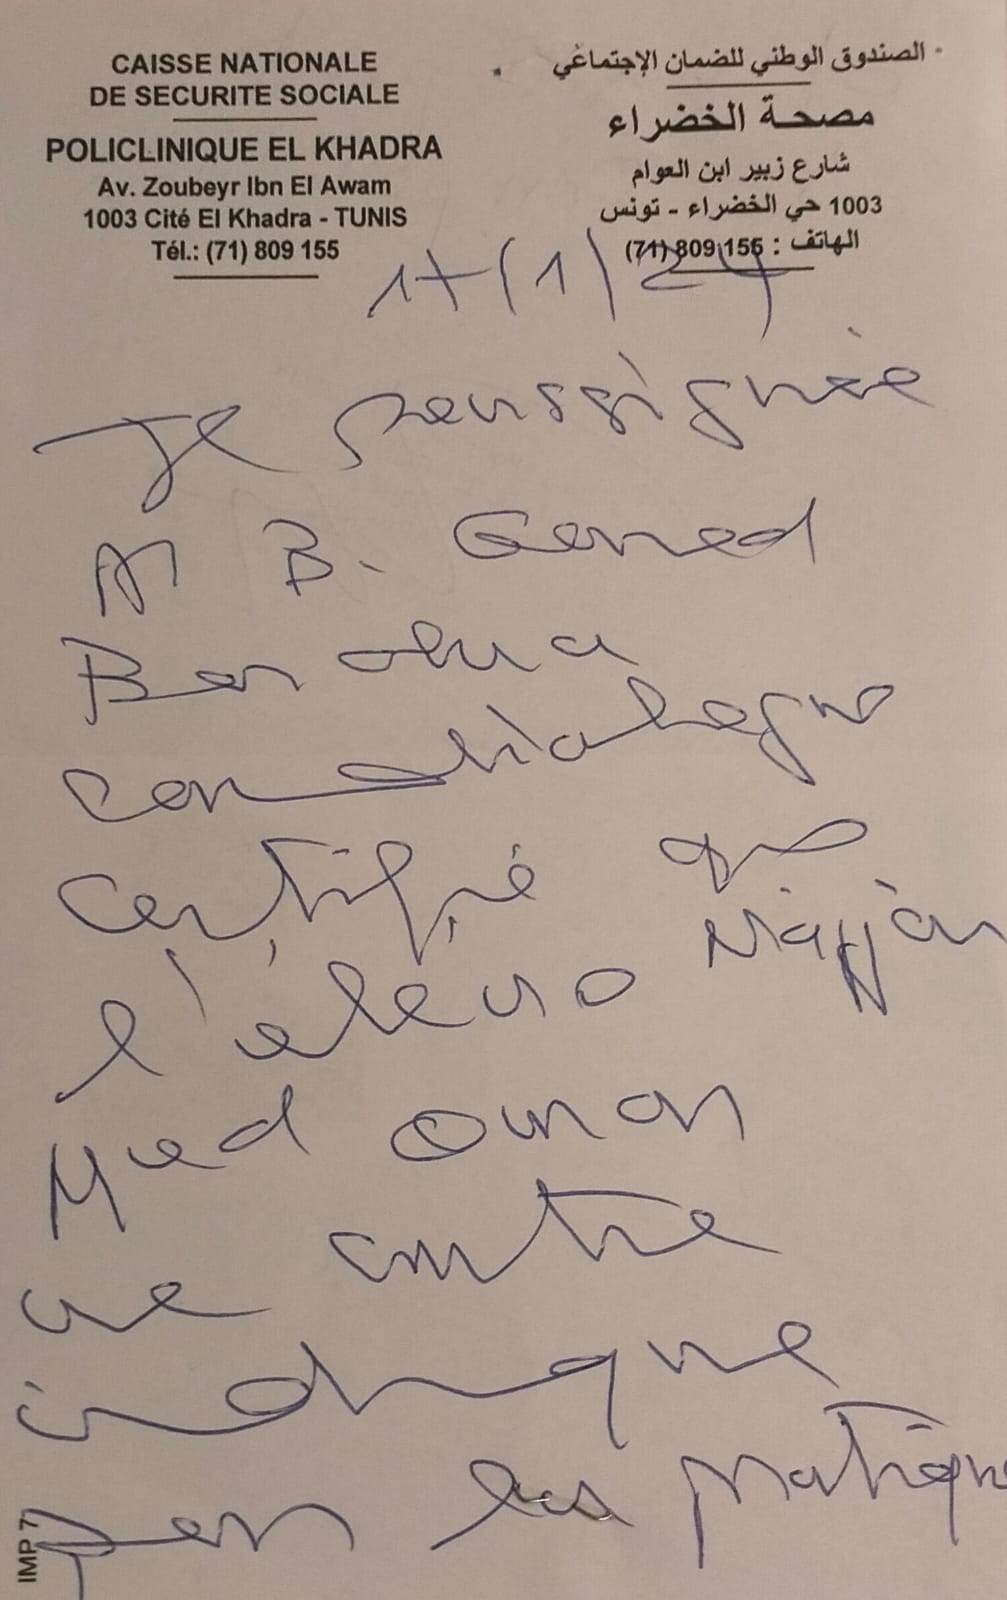 CAISSE NATIONALE
DE SECURITE SOCIALE
POLICLINIQUE EL KHADRA
Av. Zoubeyr Ibn El Awam
1003 Cité El Khadra - TUNIS
Tél.: (71) 809 155
الصندوق الوطني للضمان الإجتماعي
مصحة الخضراء
شارع زبير ابن العوام
1003 حي الخضراء - تونس
الهاتف : 155 809 (71)
17/1/24
Je soussignée
B.
Ben
certifié que
l'élève
Med Omar
ne contre
indique
pas les pratique
IMP 7